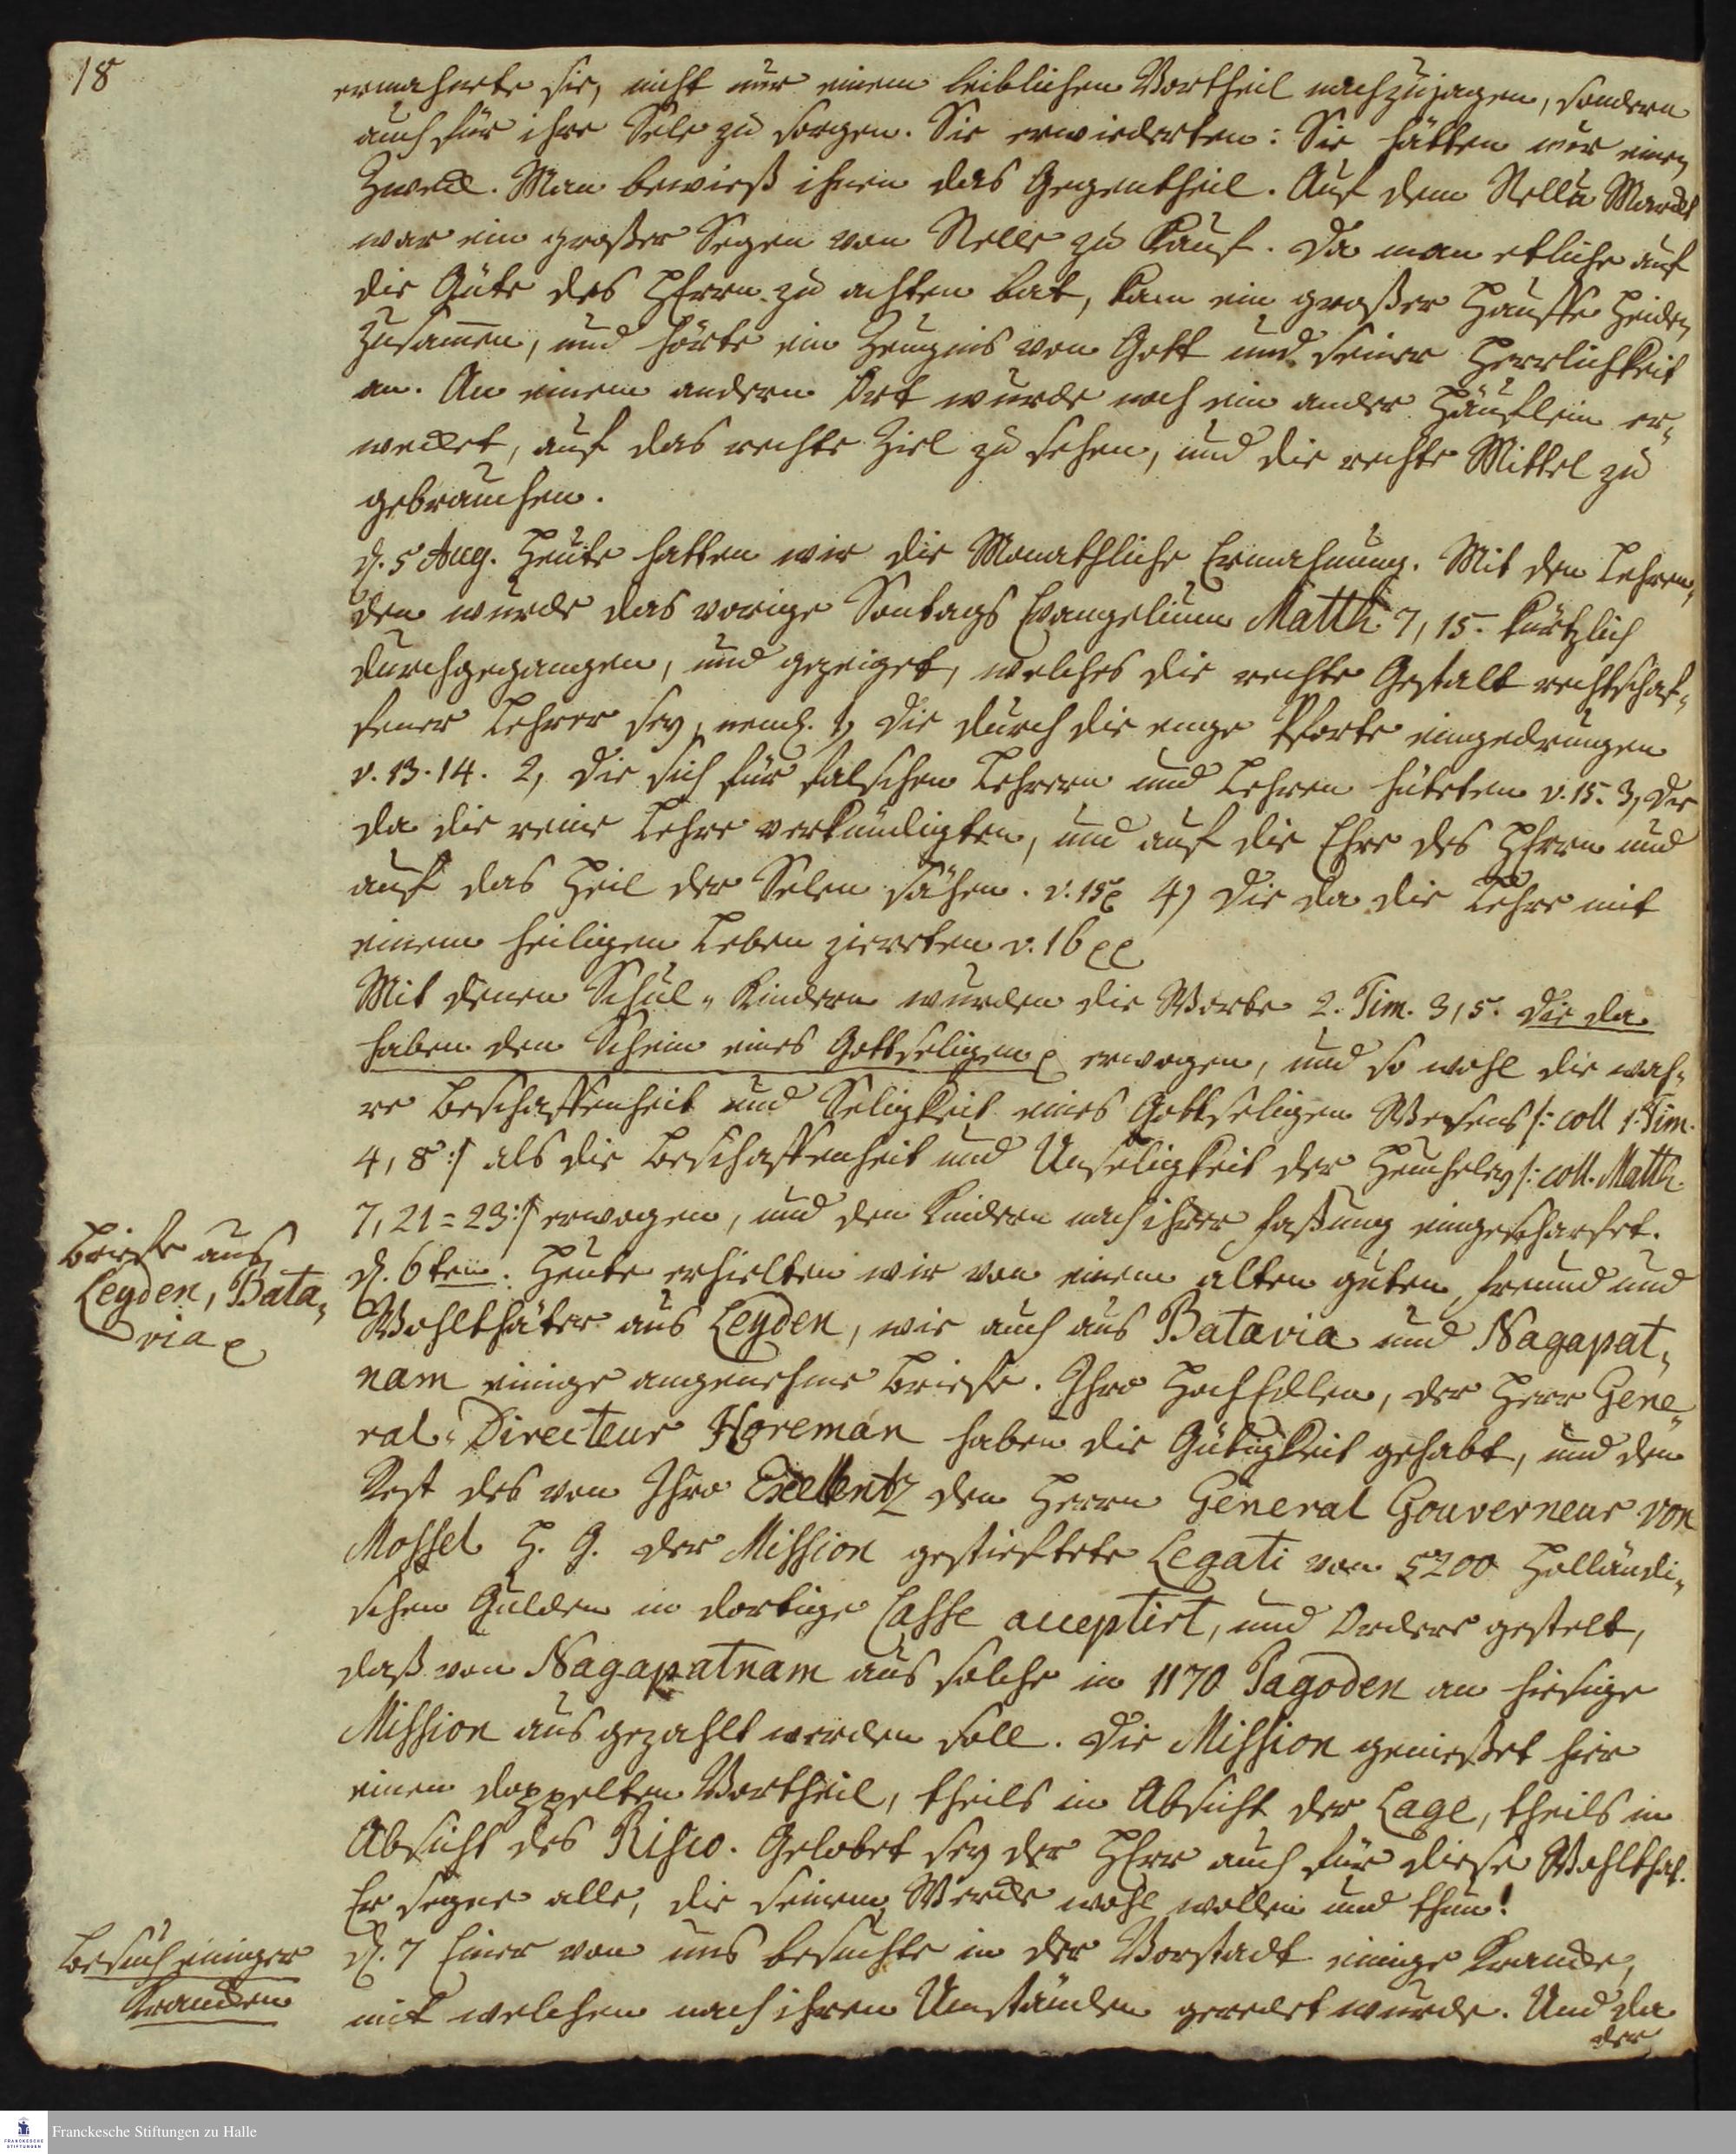 18
ermahnete sie, nicht nur einem leiblichen Vortheil nachzujagen, sondern
auch für ihre Sele zu sorgen. Sie erwiederten: Sie hätten nur einen
Zweck. Man bewieß ihnen das Gegentheil. Auf dem Nellu Marckt
war ein großer Segen von Nelle zu Kauf. Da man etliche auf
die Güte des HErrn zu achten bat, kam ein großer Hauffe Heiden
zusam̄en, und hörte ein Zeugnis von Gott und seiner Herrlichkeit
an. An einem andern Ort wurde noch ein ander Häuflein er-
wecket, auf das rechte Ziel zu sehen, und die rechte Mittel zu
gebrauchen.
d. 5 Aug. Heute hatten wir die Monathliche Ermahnung. Mit den Lehren-
den wurde das vorige Sontags Evangelium Matth. 7, 15. kürtzlich
durchgegangen, und gezeiget, welches die rechte Gestalt rechtschaf-
fener Lehrer sey, neml. 1, die durch die enge Pforte eingedrungen
v. 13. 14. 2, die sich für falschen Lehrern und Lehren hüteten v. 15. 3, die
da die reine Lehre verkündigten, und auf die Ehre des HErrn und
auf das Heil der Selen sähen. v. 15 p 4) die da die Lehre mit
einem heiligen Leben ziereten v. 16 pp
Mit denen Schul-Kindern wurden die Worte 2. Tim. 3, 5. die da
haben den Schein eines Gottseligen p erwogen, und so wohl die wah-
re Beschaffenheit und Seligkeit eines Gottseligen Wesens /: coll 1. Tim.
4, 8 :/ als die Beschaffenheit und Unseligkeit der Heucheley /: coll. Matth.
7, 21=23 :/ erwogen, und den Kindern nach ihrer Faßung eingescharfet.
Briefe aus
Leyden, Bata-
via p
d. 6ten. Heute erhielten wir von einem alten guten Freund und
Wohlthäter aus Leyden, wie auch aus Batavia und Nagapat-
nam einige angenehme Briefe. Ihro HochEdlen, der Herr Gene-
ral-Directeur Horeman haben die Gütigkeit gehabt, und den
Rest des von Ihro Excellentz den Herrn General Gouverneur von
Mossel H. G. der Mission gestieftete Legati von 5200 Holländi-
schen Gulden in dortige Casse acceptirt, und Orders gestelt,
daß von Nagapatnam aus solche in 1170 Pagoden an hiesige
Mission ausgezahlt werden soll. Die Mission genießet hier
einen doppelten Vortheil, theils in Absicht der Lage, theils in
Absicht des Risico. Gelobet sey der HErr auch für diese Wohlthat.
Er segne alle, die seinem Wercke wohl wollen und thun!
Besuch einiger
Krancken
d. 7 Einer von uns besuchte in der Vorstadt einige Krancke,
mit welchen nach ihren Umständen geredet wurde. Und da
der
Franckesche Stiftungen zu Halle
FRANCKESCHE
STIFTUNGEN